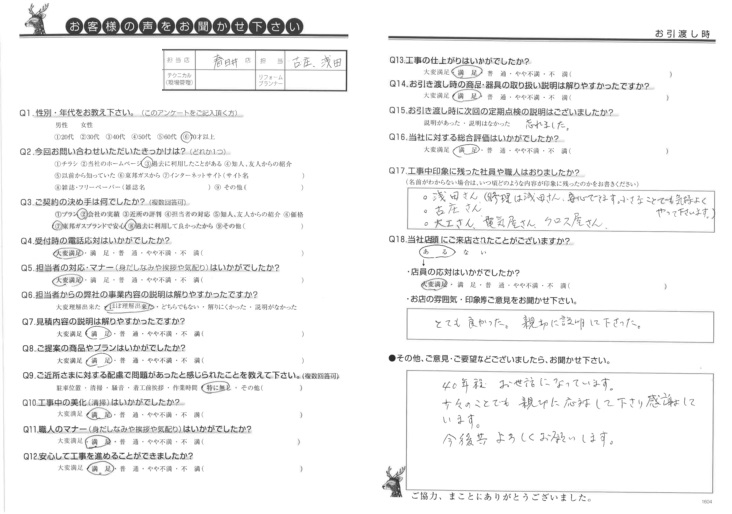 お客様の声をお聞かせ下さい
担当店 春日井 店 担当 古庄、浅田
テクニカル(現場管理) リフォームプランナー
Q1. 性別・年代をお教え下さい。(このアンケートをご記入頂く方)
男性 女性
①20代 ②30代 ③40代 ④50代 ⑤60代 ⑥70才以上
Q2.今回お問い合わせいただいたきっかけは?(どれか1つ)
①チラシ ②当社のホームページ ③過去に利用したことがある ④知人、友人からの紹介
⑤以前から知っていた ⑥東邦ガスから ⑦インターネットサイト(サイト名 )
⑧雑誌・フリーペーパー(雑誌名 ) ⑨その他( )
Q3.ご契約の決め手は何でしたか?(複数回答可)
①プラン ②会社の実績 ③近所の評判 ④担当者の対応 ⑤知人、友人からの紹介 ⑥価格
⑦東邦ガスブランドで安心 ⑧過去に利用して良かったから ⑨その他( )
Q4.受付時の電話応対はいかがでしたか?
大変満足・満 足・普 通・やや不満・不 満( )
Q5.担当者の対応・マナー(身だしなみや挨拶や気配り)はいかがでしたか?
大変満足・満 足・普 通・やや不満・不 満( )
Q6.担当者からの弊社の事業内容の説明は解りやすかったですか?
大変理解出来た・ほぼ理解出来た・どちらでもない・解りにくかった・説明がなかった
Q7.見積内容の説明は解りやすかったですか?
大変満足・満 足・普 通・やや不満・不 満( )
Q8.ご提案の商品やプランはいかがでしたか?
大変満足・満 足・普 通・やや不満・不 満( )
Q9.ご近所さまに対する配慮で問題があったと感じられたことを教えて下さい。(複数回答可)
駐車位置・清掃・騒音・着工前挨拶・作業時間・特に無し・その他( )
Q10.工事中の美化(清掃)はいかがでしたか?
大変満足・満 足・普 通・やや不満・不 満( )
Q11.職人のマナー(身だしなみや挨拶や気配り)はいかがでしたか?
大変満足・満 足・普 通・やや不満・不 満( )
Q12.安心して工事を進めることができましたか?
大変満足・満 足・普 通・やや不満・不 満( )
お引渡し時
Q13.工事の仕上がりはいかがでしたか?
大変満足・満 足・普 通・やや不満・不 満( )
Q14.お引き渡し時の商品・器具の取り扱い説明は解りやすかったですか?
大変満足・満 足・普 通・やや不満・不 満( )
Q15.お引き渡し時に次回の定期点検の説明はございましたか?
説明があった・説明はなかった 忘れました。
Q16.当社に対する総合評価はいかがでしたか?
大変満足・満 足・普 通・やや不満・不 満( )
Q17.工事中印象に残った社員や職人はおりましたか?
(名前がわからない場合は、いつ頃どのような内容が印象に残ったのかをお書きください)
○ 浅田さん(修理は浅田さん、安心でてます。小さなことでも気持よくやって下さいます。)
○ 古庄さん
○ 大工さん、電気屋さん、クロス屋さん、
Q18.当社店頭にご来店されたことがございますか?
ある な い
・店員の応対はいかがでしたか?
大変満足・満 足・普 通・やや不満・不 満( )
・お店の雰囲気・印象等ご意見をお聞かせ下さい。
とても良かった。 親切に説明して下さった。
●その他、ご意見・ご要望などございましたら、お聞かせ下さい。
40年程 お世話になっています。
少々のことでも 親切に応対して下さり感謝して
います。
今後共 よろしくお願いします。
ご協力、まことにありがとうございました。